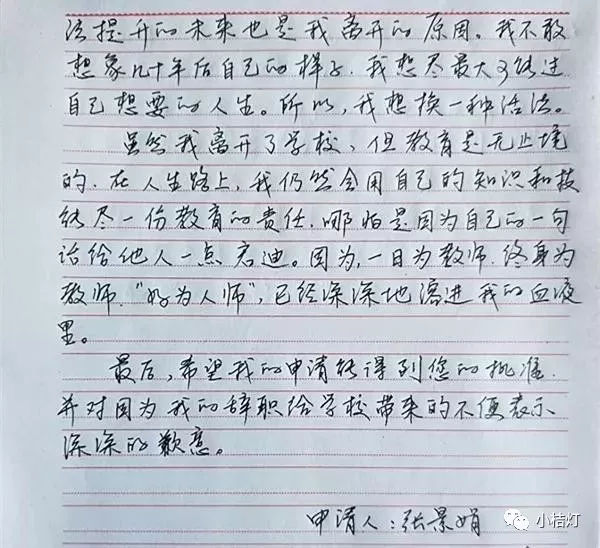 法提升的未来也是我离开的原因。我不敢
想象几十年后自己的样子，我想尽最大努力过
自己想要的人生。所以，我想换一种活法。
虽然我离开了学校，但教育是无止境
的。在人生路上，我仍然会用自己的知识和技
能尽一份教育的责任，哪怕是因为自己的一句
话给他人一点启迪。因为，一日为教师，终身为
教师，“好为人师”，已经深深地溶进我的血液
里。
最后，希望我的申请能得到您的批准，
并对因为我的辞职给学校带来的不便表示
深深的歉意。
申请人：张景娟
小桔灯